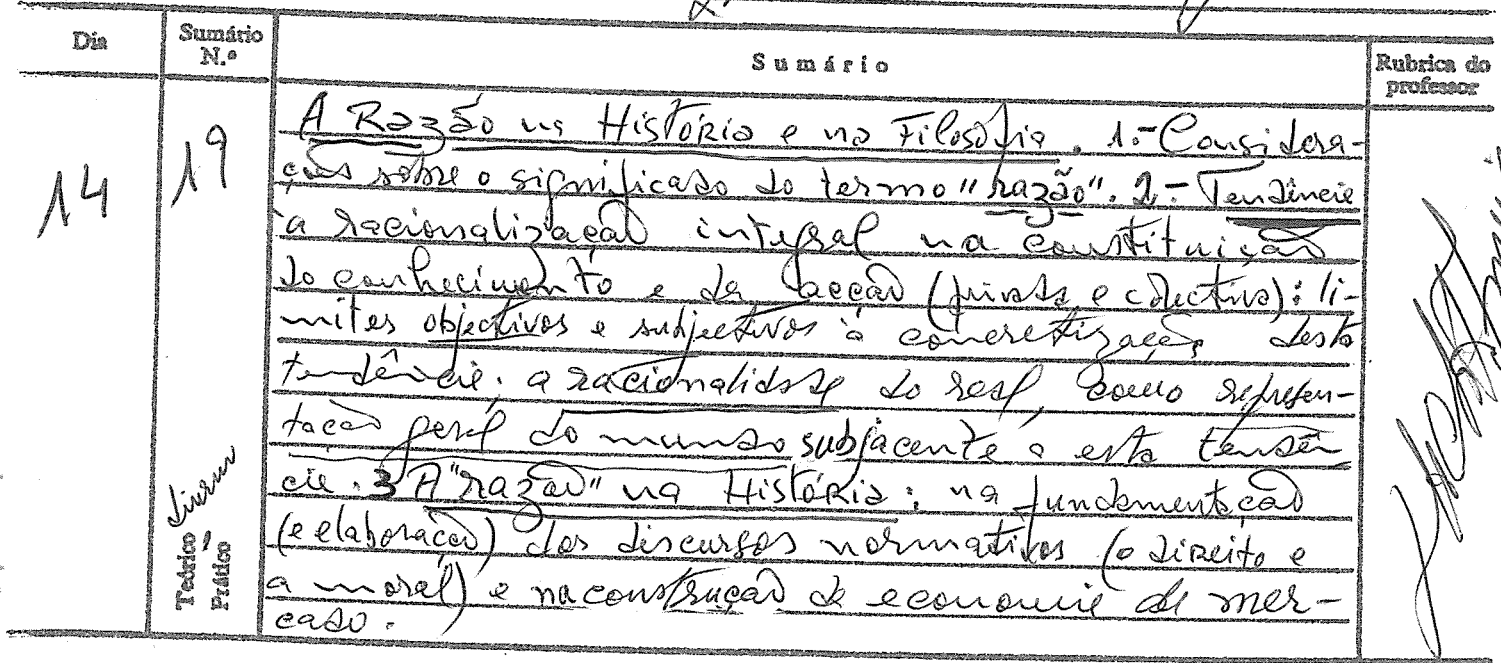 Dia
Sumário N.º
Sumário
Rubrica do professor
14
19
A Razão na História e na Filosofia. 1.- Considera-
ções sobre o significado do termo "razão". 2.- Tendência
à racionalização integral na constituição
do conhecimento e da acção (privada e colectiva): li-
mites objectivos e subjectivos à concretização desta
tendência; a racionalidade do real, como represen-
tação geral do mundo subjacente a esta tendên-
cia. 3 A "razão" na História: na fundamentação
(e elaboração) dos discursos normativos (o direito e
a moral) e na construção da economia de mer-
cado.
Teórico
Prático